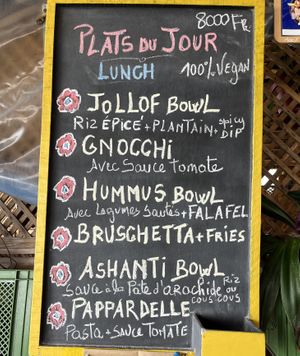 8000 Fr
PLATS DU JOUR
LUNCH 100% VEGAN
JOLLOF BOWL
RIZ ÉPICÉ + PLANTAIN + spicy DIP
GNOCCHI
Avec Sauce tomate
HUMMUS BOWL
Avec Legumes Sautés + FALAFEL
BRUSCHETTA + FRIES
ASHANTI BOWL
Sauce à la Pâte d'arachide RIZ ou
cous cous
PAPPARDELLE
Pasta + sauce TOMATE